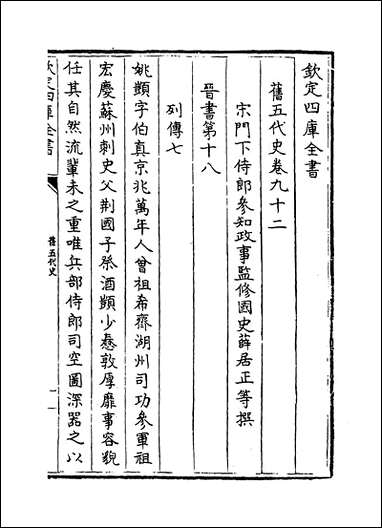 欽定四庫全書
舊五代史卷九十二
宋門下侍郎參知政事監修國史薛居正等撰
晉書第十八
列傳七
姚顗字伯真京兆萬年人曾祖希齊湖州司功參軍祖
宏慶蘇州刺史父荆國子祭酒顗少惷敦厚靡事容貌
任其自然流輩未之重唯兵部侍郎司空圖深器之以
欽定四庫全書
舊五代史
一